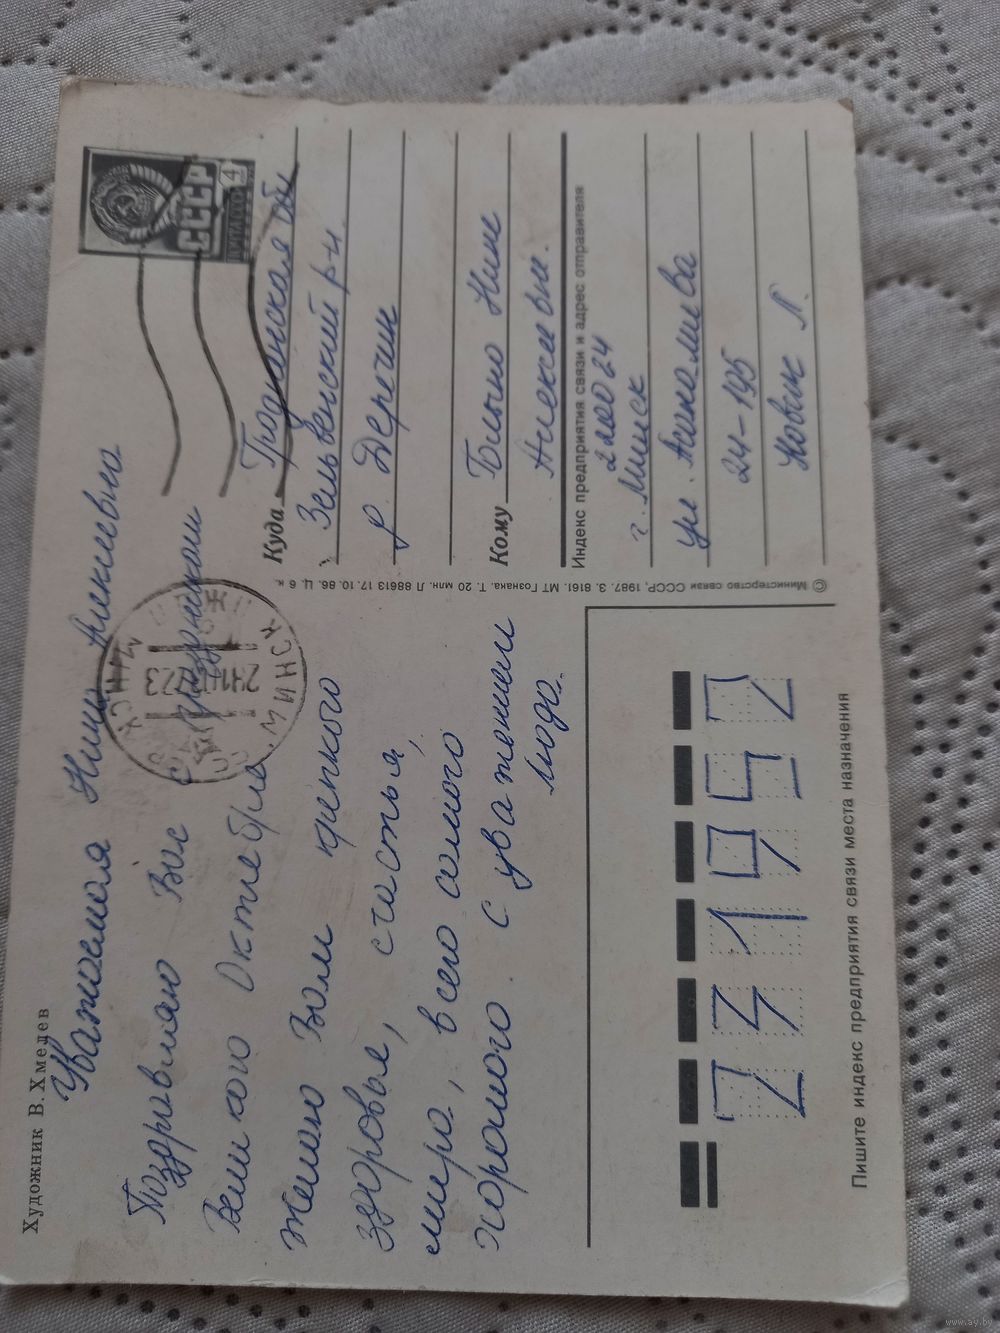 Художник В. Хмелев
Уважаемая Нина Алексеевна
Поздравляю Вас с праздником
Великого Октября.
Желаю Вам крепкого
здоровья, счастья,
мира, всего самого
хорошего. С уважением
Люда.
СССР
ПОЧТА СССР
4
МИНСК
Куда Гродненская обл
Зельвенский р-н.
р. Деречин
Кому Бычко Нине
Алексеевне.
Индекс предприятия связи и адрес отправителя
220024
г. Минск
24-195
Новик Л.
© Министерство связи СССР, 1987. З. 8161. МТ Гознака. Т. 20 млн. Л 88613 17. 10. 86. Ц. 6 к.
231952
Пишите индекс предприятия связи места назначения
www.ay.by